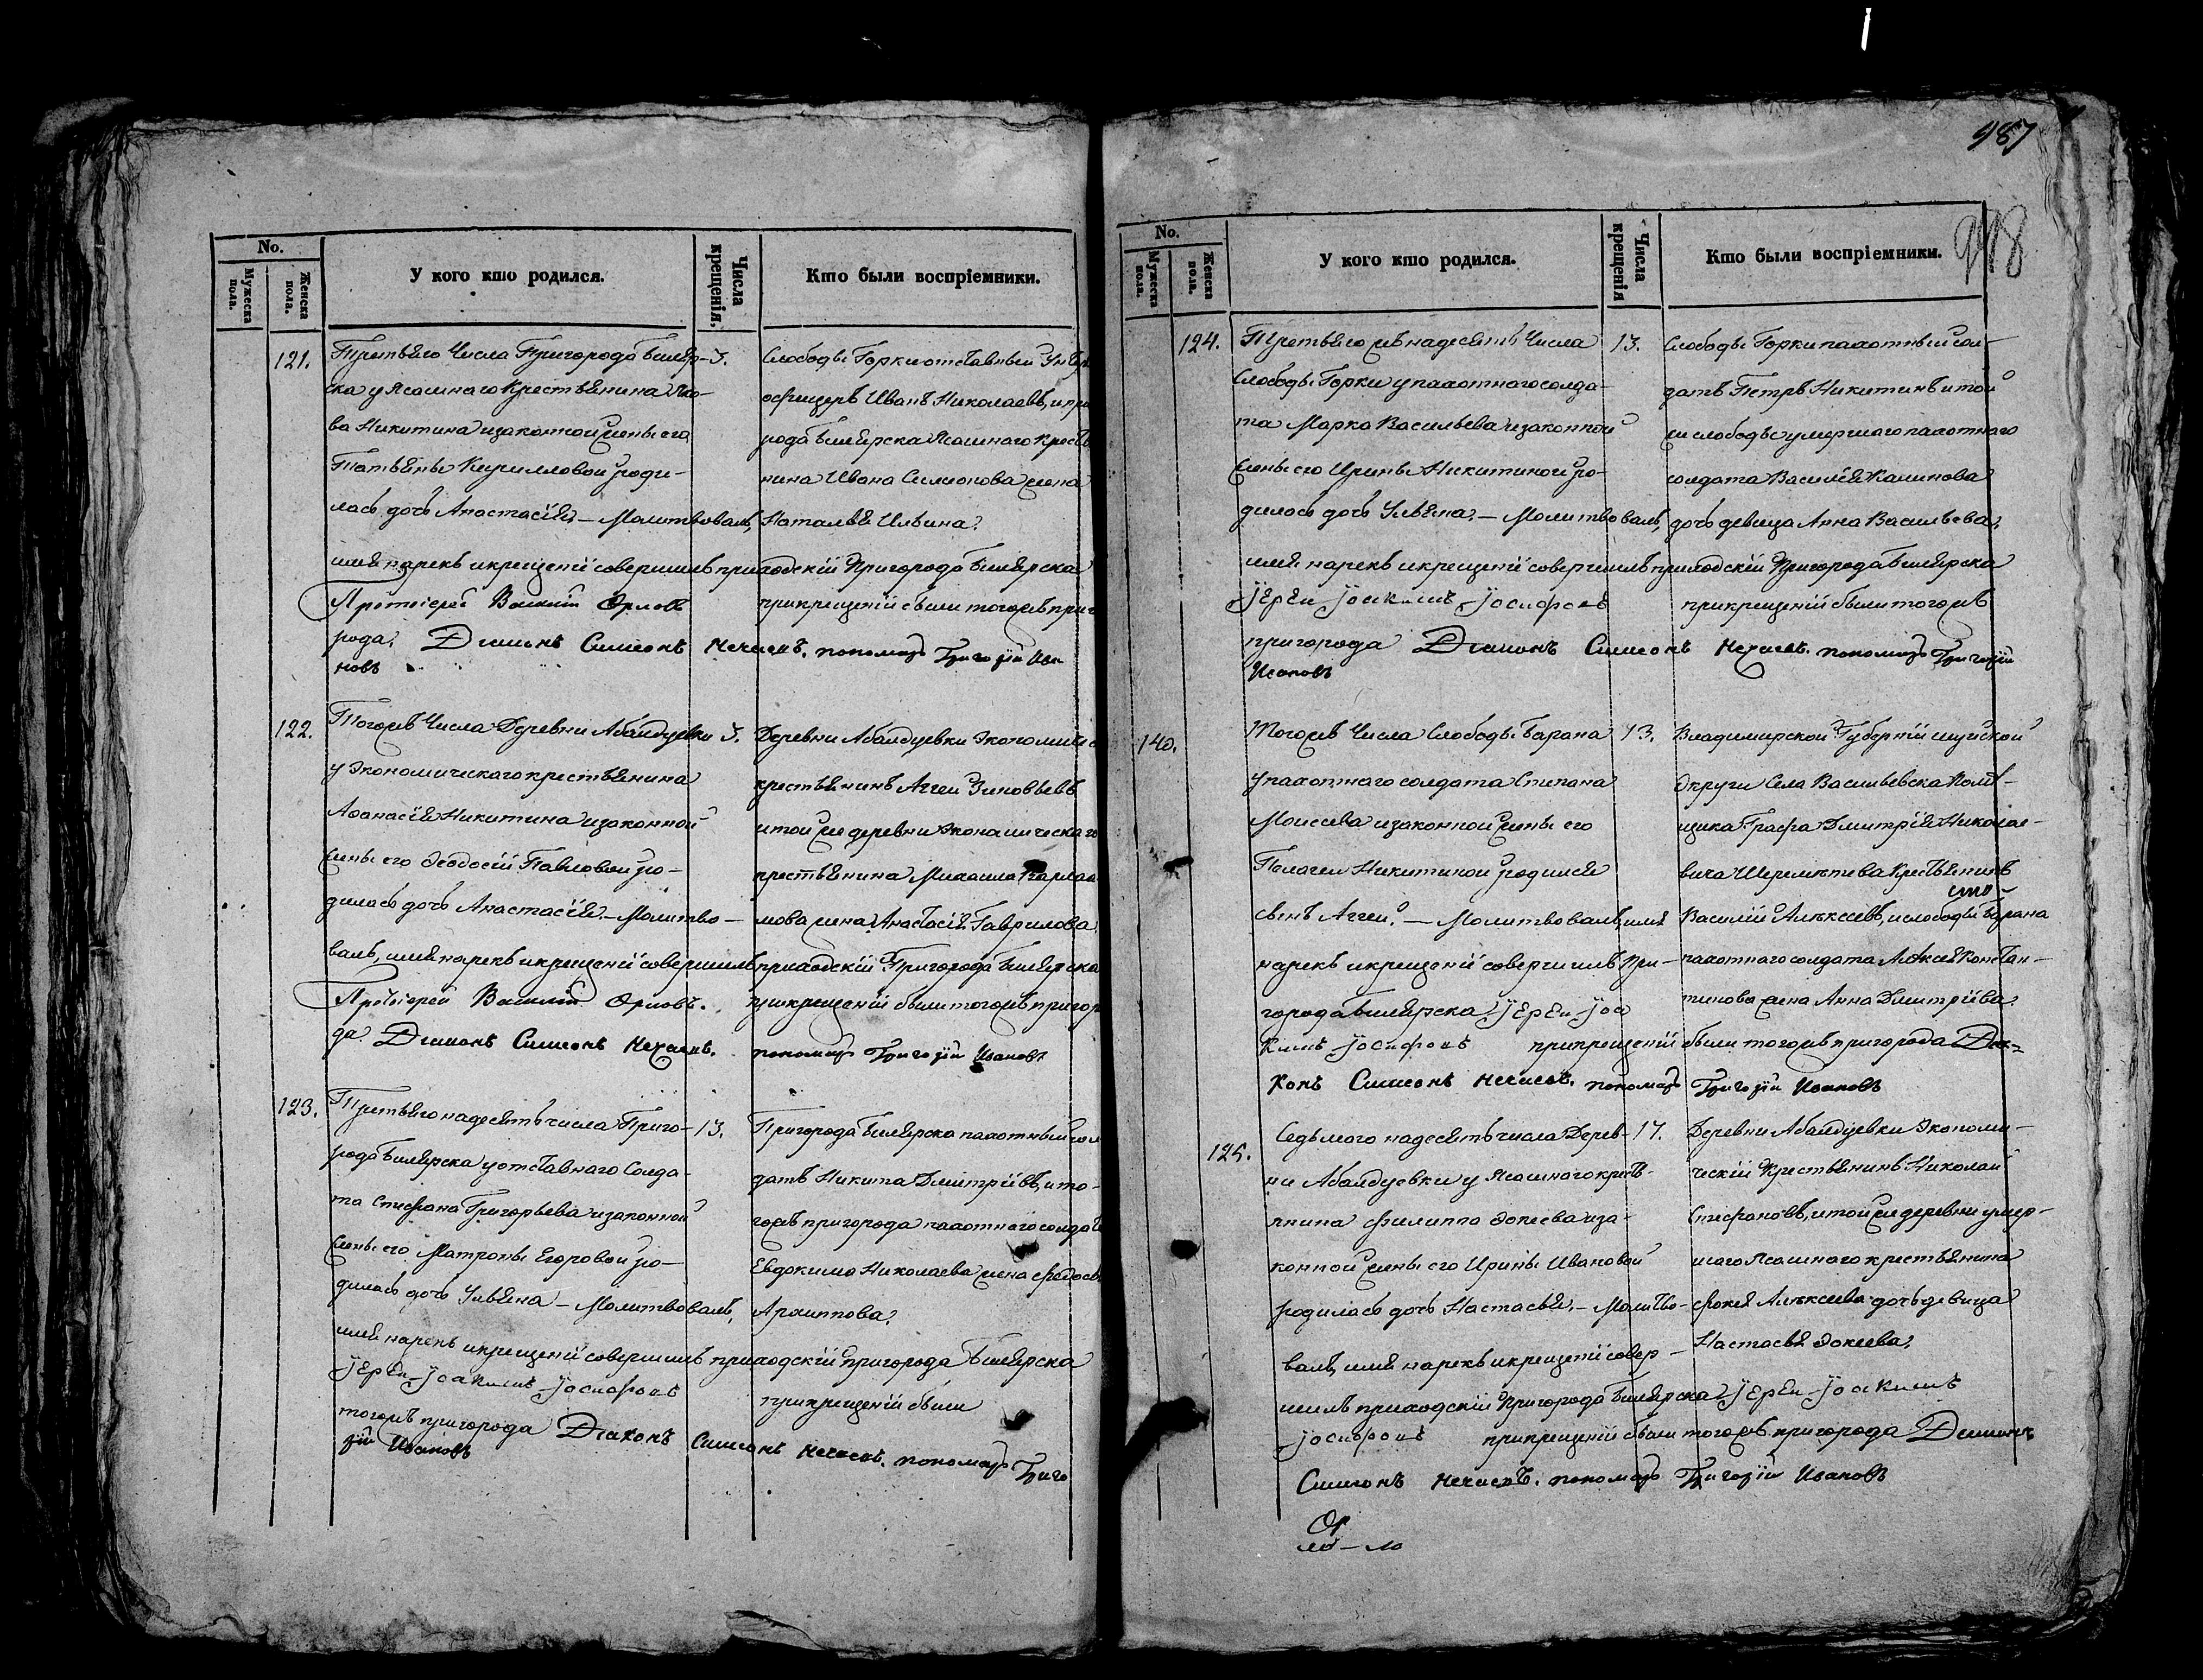 987
948
No.
Мужеска пола.
Женска пола.
У кого кто родился.
Числа крещенія.
Кто были воспріемники.
121.
Третьяго Числа Пригорода Биляр-
ска у Ясашнаго Крестьянина
ва Никитина изаконной жены его
Татьяны Кирилловой роди-
лась дочь Анастасія, – Молитвовалъ,
имя нарекъ икрещеніе совершилъ приходскій Пригорода Билярска
Протоіерей Василій Орловъ
прикрещеніи были тогожъ приго
рода, Діаконъ Симеонъ Нечаевъ. пономарь Григорій Ива
новъ
3.
Слободы Горки отставный
офицеръ Иванъ Николаевъ, и приго
рода Билярска Ясашнаго Крестья
нина Ивана Симонова жена
Наталья Ильина.
122.
Тогожъ Числа Деревни Абалдуевки
у Экономическаго крестьянина
Аѳанасія Никитина изаконной
жены его Ѳеодосіи Павловой ро-
дилась дочь Анастасія – Молитво-
валъ, имя нарекъ икрещеніе совершилъ приходскій Пригорода Билярска
Протоіерей Василій Орловъ.
прикрещеніи были тогожъ пригор
да Діаконъ Симеонъ Нечаевъ. пономарь Григорій Ивановъ
3.
Деревни Абалдуевки Экономиче
крестьянинъ Аггей Зиновьевъ
итойже деревни Экономическаго
крестьянина Михаила
мова жена Анастасія Гаврилова
123.
Третьяго надесять числа Приго-
рода Билярска уотставнаго Солда-
та Стефана Григорьева изаконной
жены его Матроны Егоровой ро-
дилась дочь Ульяна – Молитвовалъ,
имя нарекъ икрещеніе совершилъ приходскій пригорода Билярска
Іерей Іоакимъ Іосифовъ
прикрещеніи были
тогожъ пригорода Діаконъ Симеонъ Нечаевъ. пономарь Григо
рій Ивановъ
13.
Пригорода Билярска пахотный сол
датъ Никита Дмитріевъ, ито-
гожъ пригорода пахотнаго солдата
Евдокима Николаева жена Ѳедосья
Архипова.
No.
Мужеска пола.
Женска пола.
У кого кто родился.
Числа крещенія
Кто были воспріемники.
124.
Третьяго женадесять Числа
Слободы Горки упахотнаго солда-
та Марка Васильева изаконной
жены его Ирины Никитиной ро-
дилась дочь Ульяна, – Молитвовалъ,
имя нарекъ икрещеніе совершилъ приходскій Пригорода Билярска
Іерей Іоакимъ Іосифовъ
прикрещеніи были тогожъ
пригорода Діаконъ Симеонъ Нечаевъ. пономарь Григорій
Ивановъ
13.
Слободы Горки пахотный сол-
датъ Петръ Никитинъ итой
же слободы умершаго пахотнаго
солдата Василія Калинова
дочь девица Анна Васильева,
140.
Тогожъ Числа Слободы Барана
упахотнаго солдата Стипана
Моисеева изаконной жены его
Пелагеи Никитиной родился
сынъ Аггей. – Молитвовалъ, имя
нарекъ икрещеніе совершилъ При-
города Билярска Іерей Іоа
кимъ Іосифовъ прикрещеніи были тогожъ пригорода Діа-
конъ Симеонъ Нечаевъ. пономарь Григорій Ивановъ
13.
Владимирской Губерніи шуйской
Округи Села Васильевска Помѣ-
щика Графа Дмитрія Николае-
вича Шереметева Крестьянинъ
Василій Алексеевъ, ислободы Барана
пахотнаго солдата Алексея Констан-
тинова жена Анна Дмитріева.
125.
Седьмого надесять числа Дерев-
ни Абалдуевки у Ясашнаго крест-
янина Филиппа Ѳокеева иза-
конной жены его Ирины Ивановой
родилась дочь Настасья, – Молитво-
валъ, имя нарекъ икрещеніе совер-
шилъ приходскій Пригорода Билярска Іерей Іоакимъ
Іосифовъ прикрещеніи были тогожъ пригорода Діаконъ
Симеонъ Нечаевъ. пономарь Григорій Ивановъ
17.
Деревни Абалдуевки Экономи-
ческій Крестьянинъ Николай
Стефановъ, итойже деревни умер-
шаго Ясашнаго крестьянина
Ѳокея Алексеева дочь девица
Настасья Ѳокеева.